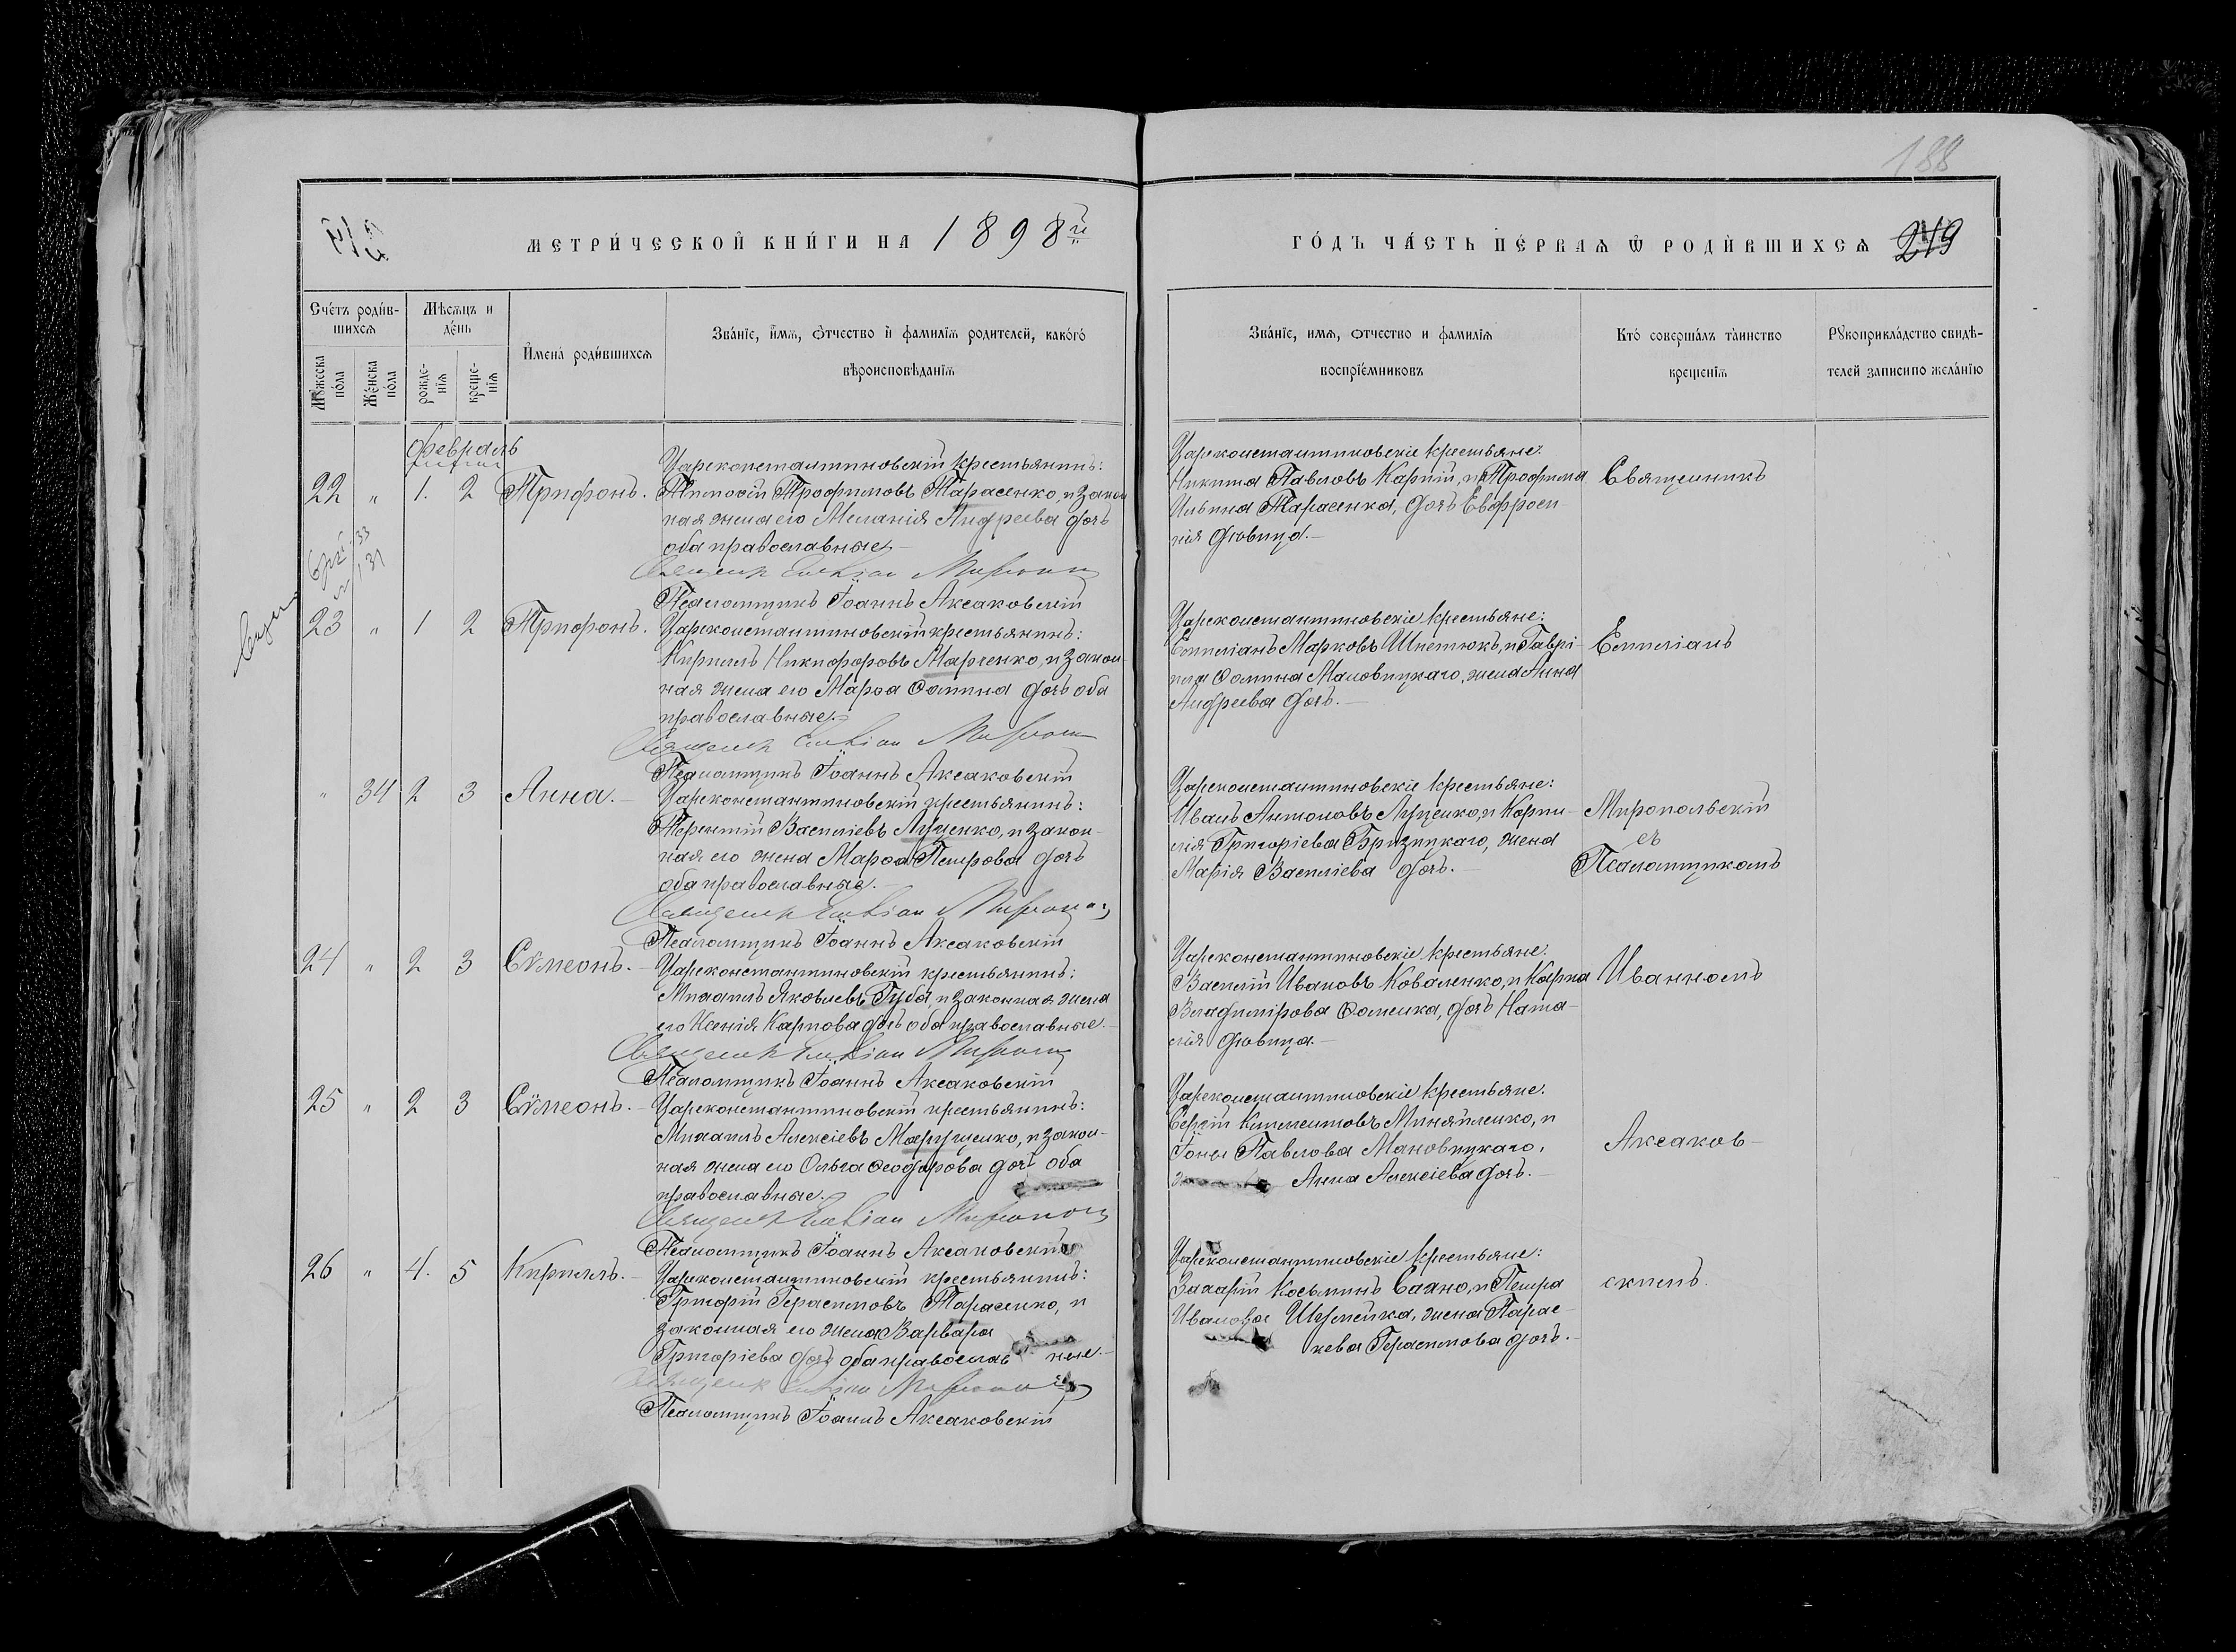 188
МЕТРИ́ЧЕСКОЙ КНИ́ГИ НА 1898й
ГО́ДЪ ЧА́СТЬ ПЕ́РВАѦ Ѿ РОДИ́ВШИХСѦ 249
Сче́тъ роди́в-
шихсѧ
Мѣсѧцъ и
де́нь
Мꙋжеска
по́ла
Же́нска
по́ла
рожде-
нїѧ
креще-
нїѧ
И́мена́ роди́вшихсѧ
Зва́нїе, и́мѧ, о́тчество и́ фамилїѧ родителей, како́го
вѣроисповѣ́данїѧ
Зва́нїе, имѧ, отчество и фамилїѧ
воспрїе́мниковъ
Кто́ соверша́лъ та́инство
креще́нїѧ
Рꙋкоприкла́дство свидѣ-
телей записи по жела́нїю
Февраль
22 " 1. 2 Трифонъ.
Цареконстантиновскій крестьянинъ:
Тимофій Трофимовъ Тарасенко, и закон
ная жена его Меланія Андреева дочь
оба православные
Псаломщикъ Іоаннъ Аксаковскій
Цареконстантиновскіе крестьяне:
Никита Павловъ Карпій, и Трофима
Ильина Тарасенка, дочь Евфроси
нія дѣвица.
Священникъ
23 " 1 2 Трифонъ.
Цареконстантиновскій крестьянинъ:
Кириллъ Никифоровъ Марченко, и закон-
ная жена его Марѳа Ѳомина дочь оба
православные.
Псаломщикъ Іоаннъ Аксаковскій
Цареконстантиновскіе крестьяне:
Емиліанъ Марковъ Шпетюкъ, и Гаврі-
ила Ѳомина Мановицкаго, жена Анна
Андреева дочь.
Емиліанъ
" 34 2 3 Анна.
Цареконстантиновскій крестьянинъ:
Терентій Василіевъ Луценко, и закон-
ная его жена Марѳа Петрова дочь
оба православные.
Псаломщикъ Іоаннъ Аксаковскій
Цареконстантиновскіе крестьяне:
Иванъ Антоновъ Луценко, и Корни-
лія Григоріева Бризицкаго, жена
Марія Василіева дочь.
Миропольскій
съ
Псаломщикомъ
24 " 2 3 Сѵмеонъ.
Цареконстантиновскій крестьянинъ:
Михаилъ Яковлевъ Губа, и законная жена
его Ксенія Карпова дочь оба православные.
Псаломщикъ Іоаннъ Аксаковскій
Цареконстантиновскіе крестьяне:
Василій Ивановъ Коваленко, и Карпа
Владимірова Ѳоменка, дочь Ната-
лія дѣвица.
Иванномъ
25 " 2 3 Сѵмеонъ.
Цареконстантиновскій крестьянинъ:
Михаилъ Алексіевъ Марущенко, и закон-
ная жена его Ольга Ѳеодорова дочь оба
православные.
Псаломщикъ Іоаннъ Аксаковскій
Цареконстантиновскіе крестьяне:
Сергій Климентовъ Миняйленко, и
Іоны Павлова Мановицкаго,
Анна Алексіева дочь.
Аксаков-
26 " 4. 5 Кириллъ.
Цареконстантиновскій крестьянинъ:
Григорій Герасимовъ Тарасенко, и
законная его жена Варвара
Григоріева дочь оба православ ные.
Псаломщикъ Іоаннъ Аксаковскій
Цареконстантиновскіе крестьяне:
Захарій Косьминъ Сахно, и Петра
Иванова жена Парас-
кева Герасимова дочь.
скимъ.